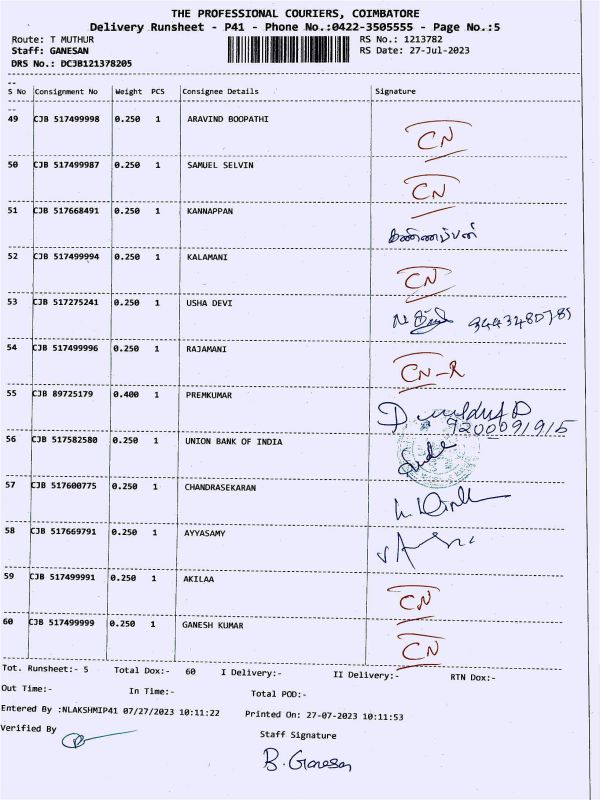 THE PROFESSIONAL COURIERS, COIMBATORE
Delivery Runsheet - P41 - Phone No.:0422-3505555 - Page No.:5
Route: T MUTHUR RS No.: 1213782
Staff: GANESAN RS Date: 27-Jul-2023
DRS No.: DCJB121378205
S No Consignment No Weight PCS Consignee Details Signature
49 CJB 517499998 0.250 1 ARAVIND BOOPATHI CN
50 CJB 517499987 0.250 1 SAMUEL SELVIN CN
51 CJB 517668491 0.250 1 KANNAPPAN கண்ணப்பன்
52 CJB 517499994 0.250 1 KALAMANI CN
53 CJB 517275241 0.250 1 USHA DEVI 9443480789
54 CJB 517499996 0.250 1 RAJAMANI CN-R
55 CJB 89725179 0.400 1 PREMKUMAR 9200091915
56 CJB 517582580 0.250 1 UNION BANK OF INDIA
57 CJB 517600775 0.250 1 CHANDRASEKARAN
58 CJB 517669791 0.250 1 AYYASAMY
59 CJB 517499991 0.250 1 AKILAA CN
60 CJB 517499999 0.250 1 GANESH KUMAR CN
Tot. Runsheet:- 5 Total Dox:- 60 I Delivery:- II Delivery:- RTN Dox:-
Out Time:- In Time:- Total POD:-
Entered By :NLAKSHMIP41 07/27/2023 10:11:22 Printed On: 27-07-2023 10:11:53
Verified By Staff Signature
B. Ganesan